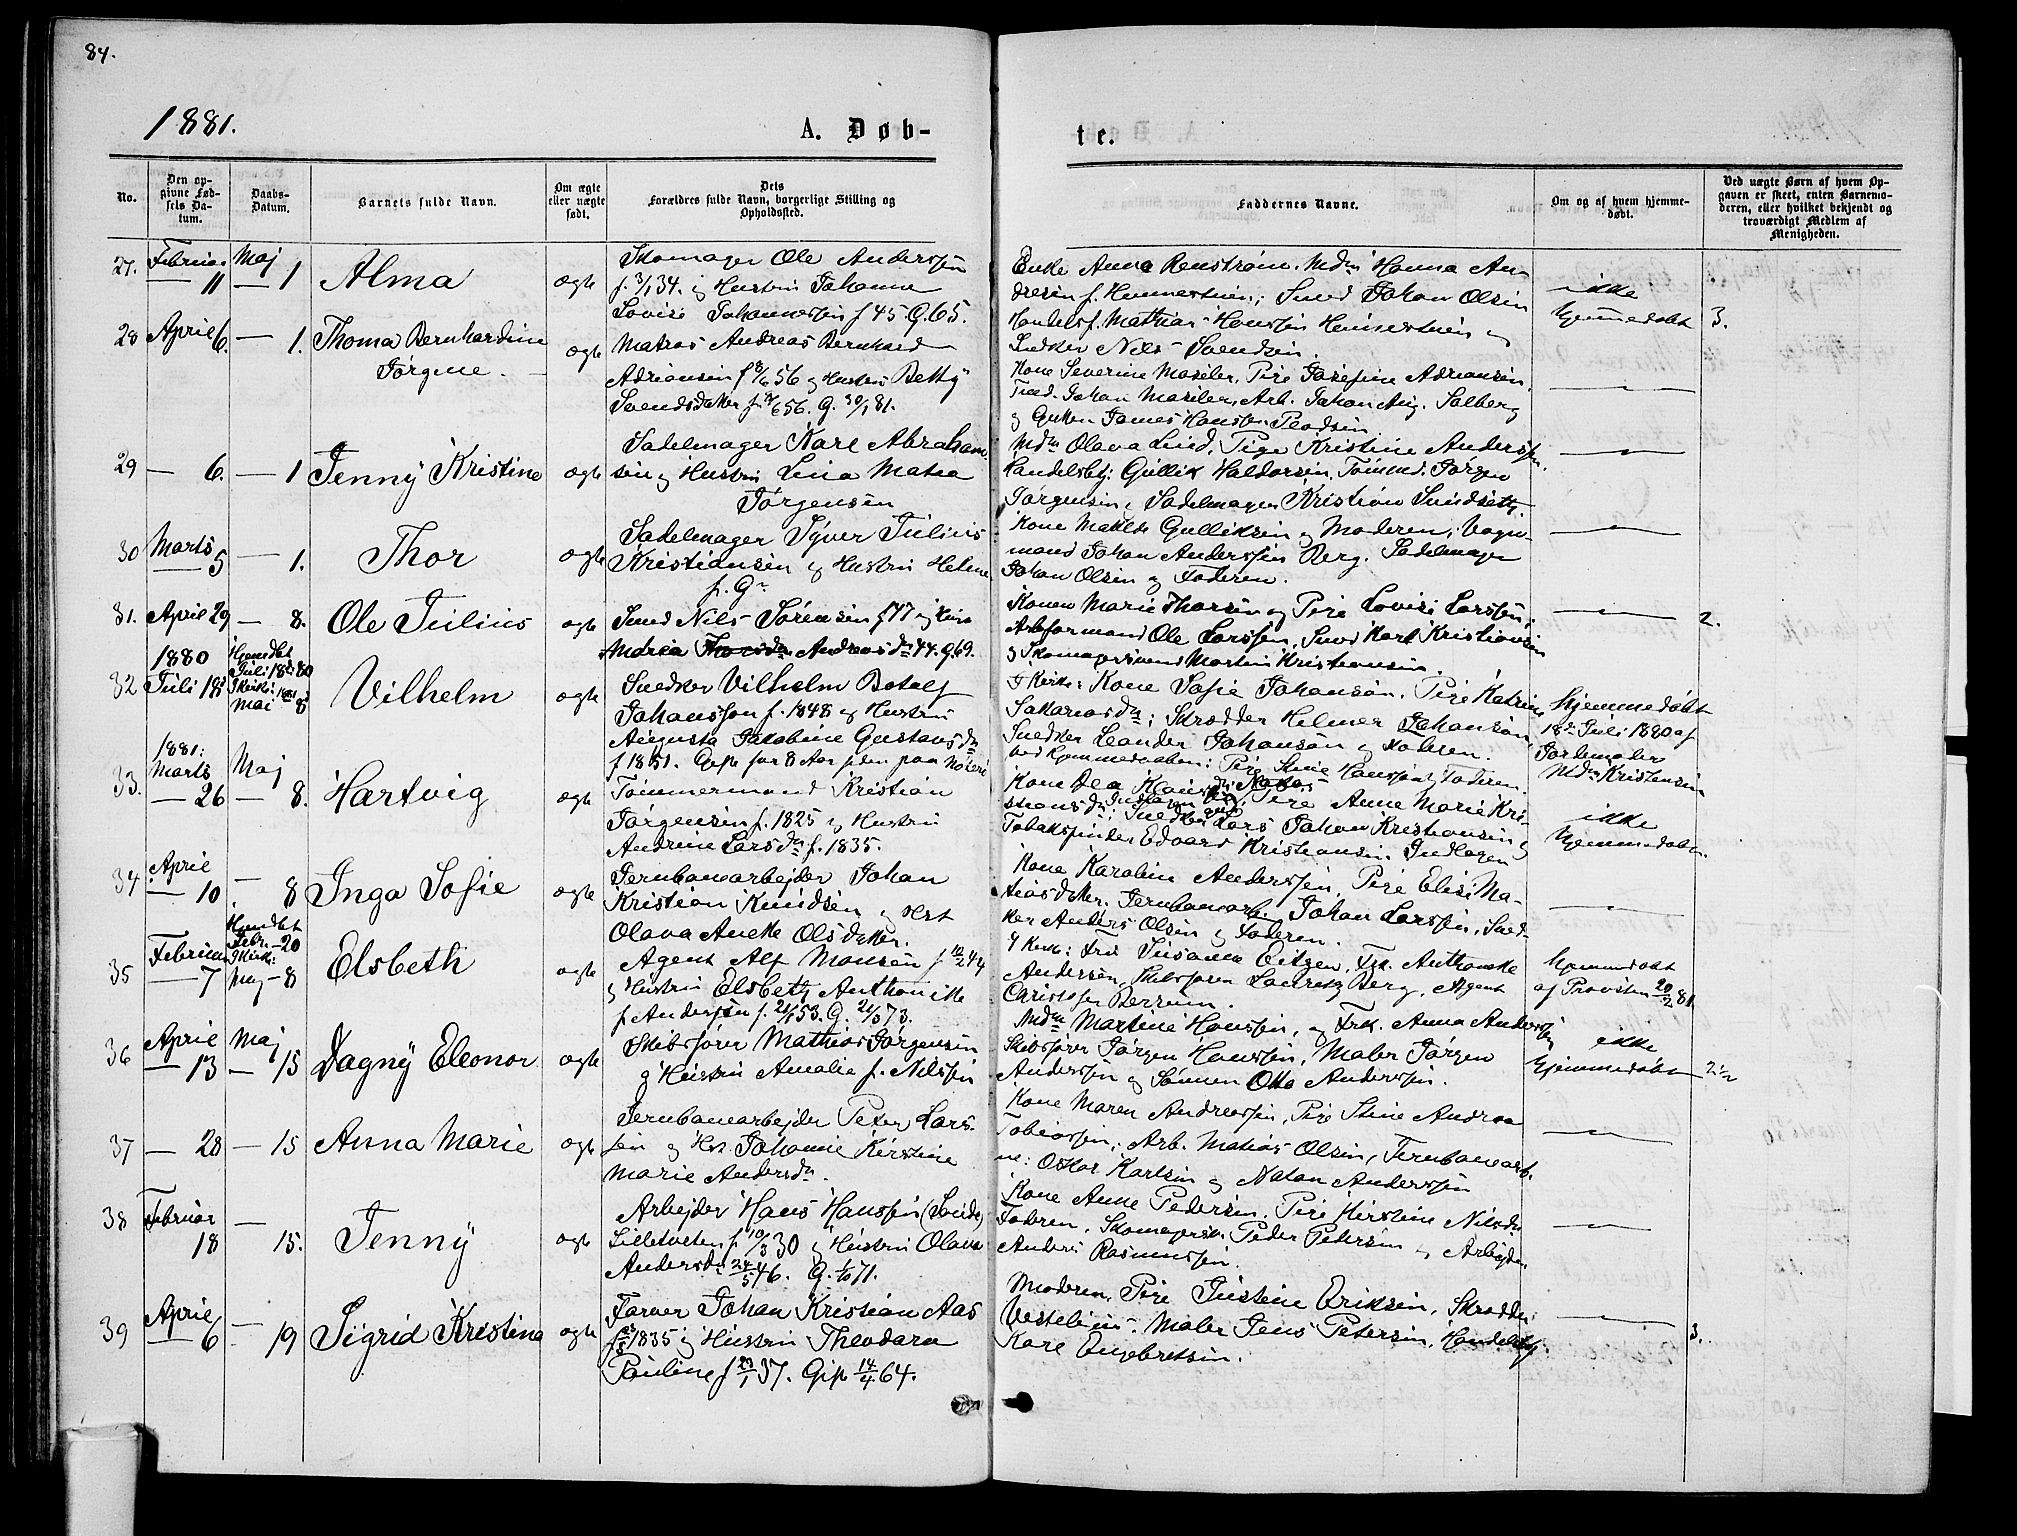 84.
1881.
A. Døb-
te.
No.
Den op-
givne Fød-
sels Da-
tum.
Daabs-
Datum.
Barnets fulde Navn.
Om ægte
eller uægte
født.
Dets
Forældres fulde Navn, borgerlige Stilling og
Opholdssted.
Faddernes Navne.
Om og af hvem hjemme-
døbt.
Ved uægte Børn af hvem Op-
gaven er skeet, enten Barnemo-
deren, eller hvilket bekjendt og
troværdigt Medlem af
Menigheden.
27. Februar 11 Maj 1 Alma ægte
Skomager Ole Anderssen
f. 3/1 34. og Hustru Johanne
Lovise Johannessen f 45 G. 65.
Enke Anna Renstrøm, Mdm Hanna An-
dresen f. Smed Johan Olsen
Handelsf. Mathias Hanssen og
Snedker Nils Svendsen.
ikke
hjemmedøbt
3.
28 April 6. 1. Thoma Bernhardine
Jørgine. ægte
Matros Andreas Bernhard
Adriansen f 56 og Hustru Betty
Svendsdatter f. 56. G. 30/1 81.
Kone Severine Pige Josefine Adriansen,
Johan Arb. Johan Aug. Solberg
og James Hanssen
29 6. 1 Jenny Kristine ægte
Sadelmager Karl Abraham-
sen og Hustru Lina Matea
Jørgensen
Mdm Olava Lund, Pige Kristine Anderssen.
Handelsbtj. Gullik Haldorsen, Tømmd. Jørgen
Jørgensen og Sadelmager Kristian
30 Marts 5 1. Thor ægte
Sadelmager Syver Julius
Kristiansen og Hustru Helene
f. G.
Kone Gulliksen og Moderen; Vogn-
mand Johan Anderssen Berg. Sadelmager
Johan Olsen og Faderen.
31. April 29 8. Ole Julius ægte
Smed Nils Sørensen f 47 og
Maria Andreasdr 44. G. 69.
Konen Marie Thorsen og Pige Lovise Larssen,
Arbformand Ole Larssen, Smed Karl Kristiansen
og Skomagersvend Martin Kristiansen.
2.
1880
32 Juli 18
Hjemdbt
Juli 18 80
I Kirke: 1881
Mai 8
Vilhelm ægte
Snedker Vilhelm Betolf
Johansson f. 1848 og Hustru
Augusta Jakobine Gustavsdr
f 1851. Gift for 8 Aar siden paa
I Kirke: Kone Sofie Johanson, Pige Katrine
Sakariasdr; Skrædder Helmer Johanson,
Snedker Leander Johanson og Faderen.
ved Hjemmedaaben: Pige Stine Hanssen og Faderen.
hjemmedøbt
18de Juli 1880 af
Jordemoder
Mdm Kristensen
1881:
33. Marts 26 Maj 8. Hartvig ægte
Tømmermand Kristian
Jørgensen f. 1825 og Hustru
Andrine Larsdr f. 1835.
Kone Dea Pige Anne Marie Kri-
stiansdr; Snedker Lars Johan Kristiansen og
Tobakspinder Edvard Kristiansen.
ikke
hjemmedøbt
34. April 10 8 Inga Sofie ægte
Jernbanearbejder Johan
Kristian Knudsen og Hst
Olava Aneke Olsdatter.
Kone Karoline Anderssen, Pige Elise Ma-
tiasdatter. Jernbanearb. Johan Larssen, Sned-
ker Anders Olsen og Faderen.
35 Februar 7
Hjemdbt
Febr. 20
I Kirke:
Maj 8
Elsbeth ægte
Agent Alf Monsen f 12/2 44
og Hustru Elsbeth Anthonette
f Andersen f. 21/1 53. G. 21/5 73.
I Kirke: Fru Susanna Eitzen, Frk. Anthonette
Andersen, Skibsfører Lauretz Berg, Agent
Christofer Berrum.
hjemmedøbt
af Provsten 20/2 81.
36 April 13 Maj 15 Dagny Eleonor ægte
Skibsfører Mathias Jørgensen
og Hustru Amalie f. Nilssen
Mdm Martine Hanssen, og Frk. Anna Anderssen
Skibsfører Jørgen Hanssen, Maler Jørgen
Anderssen og Sønnen Otto Anderssen.
ikke
hjemmedøbt
2 1/2
37 28 15 Anna Marie ægte
Jernbanearbejder Peter Lars-
sen og Hst. Johanne Kirstine
Marie Andersdr.
Kone Maren Andreassen, Pige Stine Andrea
Tobiassen, Arb. Matias Olsen, Jernbanearb.
ne: Oskar Karlsen og Natan Anderssen
38 Februar 18 15. Jenny ægte
Arbejder Hans Hanssen
Lilletveten f. 10/3 30 og Hustru Olava
Andersdr 24/5 46. G. 1/10 71.
Kone Anne Pedersen, Pige Kirstine Nilsdr
Faderen, Skomagersv. Peder Petersen og Arbejder
Anders Rasmussen.
39 April 6 19 Sigrid Kristina ægte
Farver Johan Kristian Aas
f. 1835 og Hustru Theodora
Pauline f 1 37. Gift 14/4 64.
Moderen, Pige Justine Eriksen, Skrædder
Maler Jens Petersen, Handelsbtj.
Karl Engebretsen.
3.